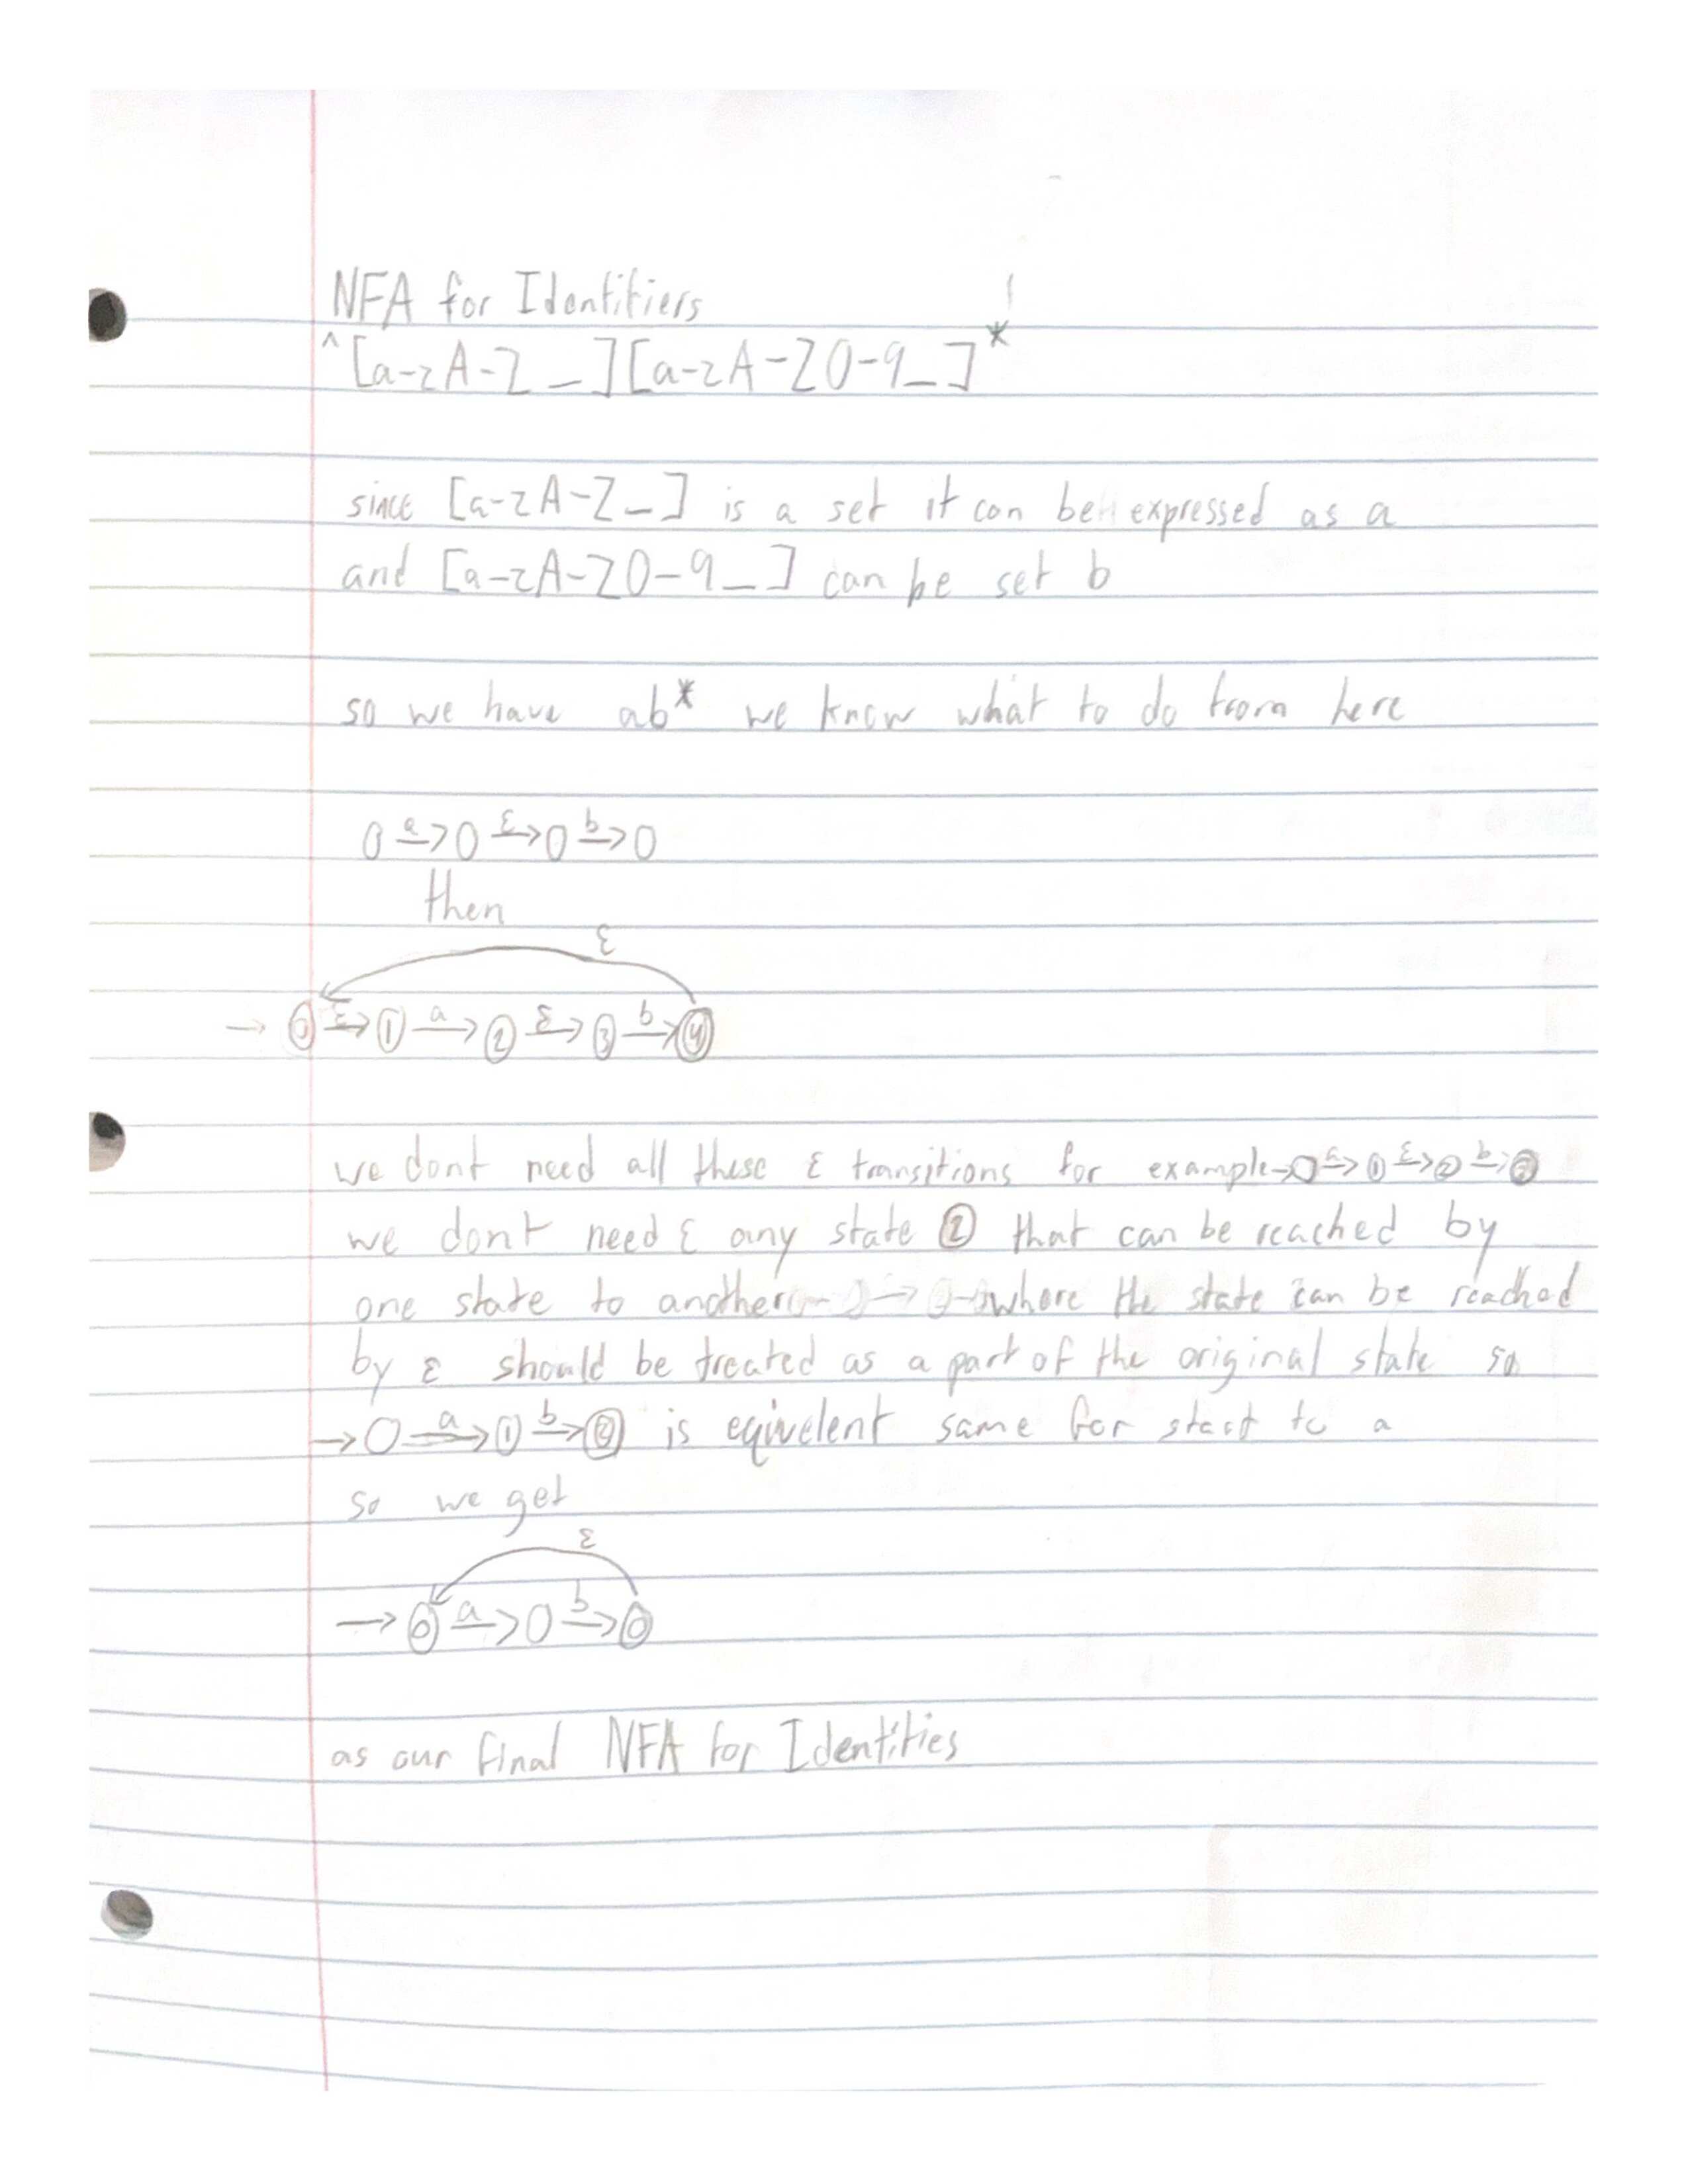 NFA for Identifiers
^[a-zA-Z_][a-zA-Z0-9_]*
since [a-zA-Z_] is a set it can be expressed as a
and [a-zA-Z0-9_] can be set b
so we have ab* we know what to do from here
0 a→ 0 ε→ 0 b→ 0
then
ε
→ 0 ε→ 1 a→ 2 ε→ 3 b→ 4
we dont need all these ε transitions for example → 0 a→ 1 ε→ 2 b→ 3
we dont need ε any state 2 that can be reached by
one state to another where the state can be reached
by ε should be treated as a part of the original state so
→ 0 a→ 1 b→ 2 is eqivelent same for start to a
so we get
ε
→ 0 a→ 0 b→ 0
as our final NFA for Identities